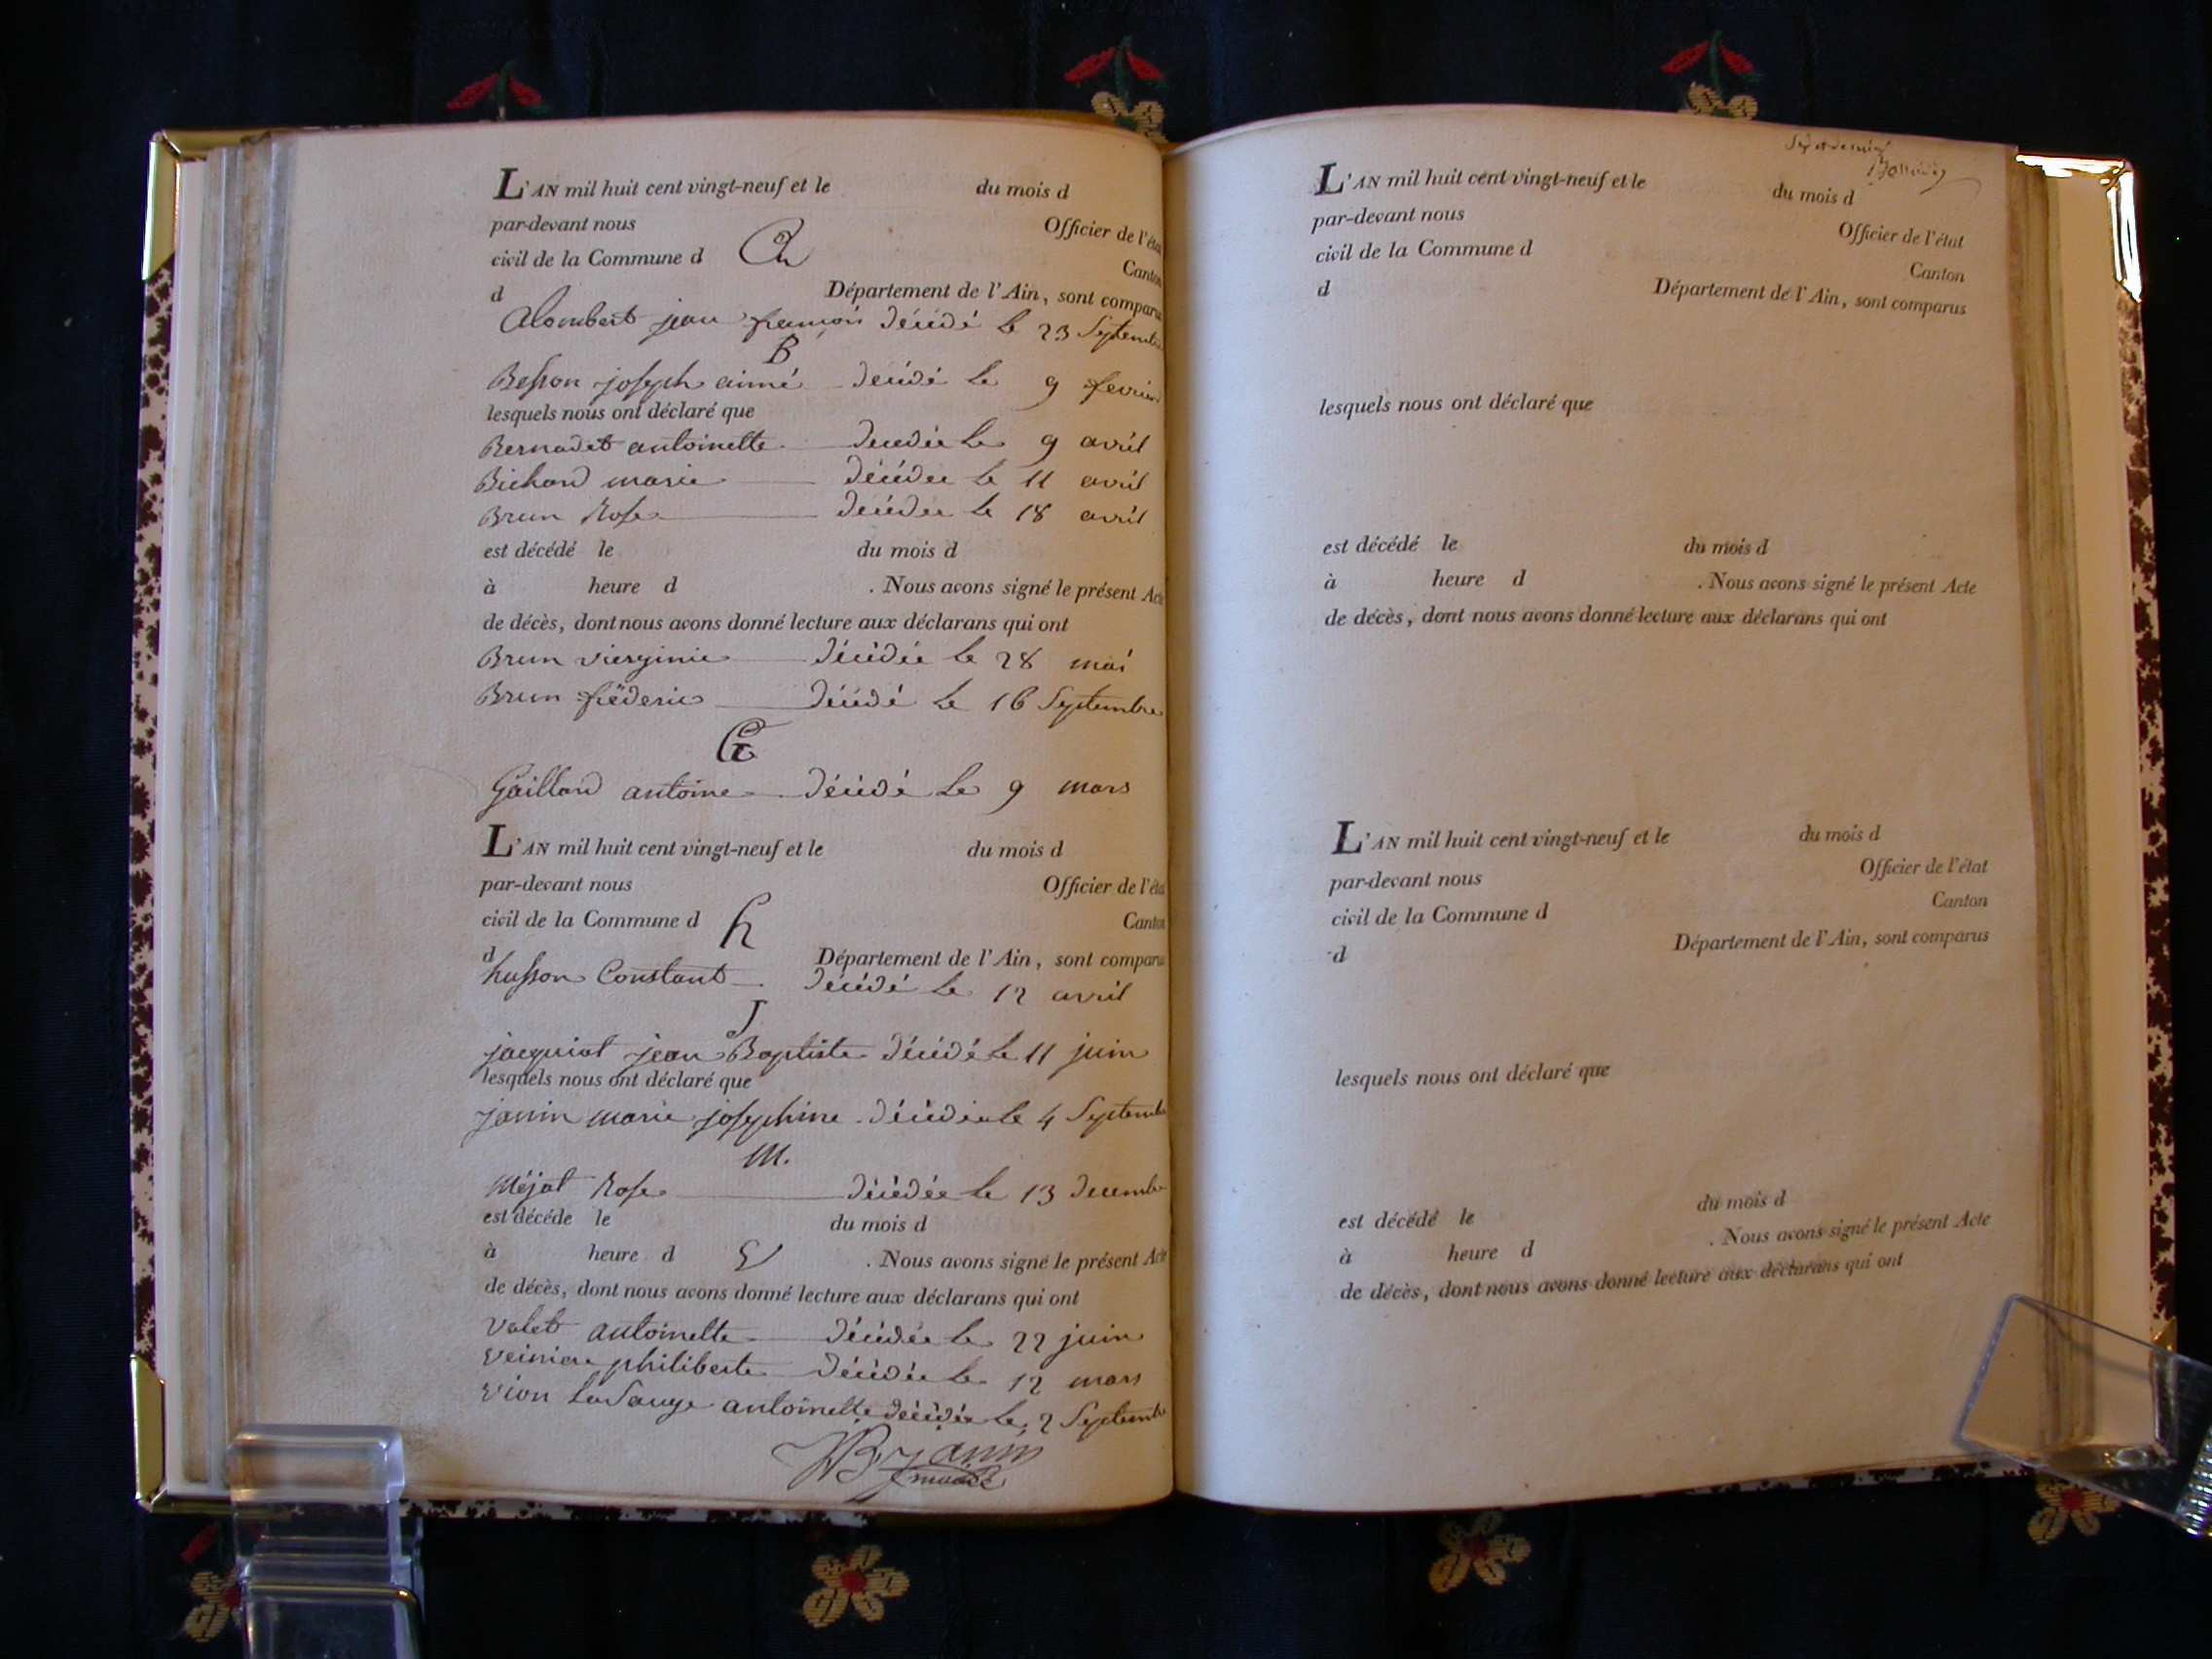 L'AN mil huit cent vingt-neuf et le du mois d
par-devant nous Officier de l'éta
civil de la Commune d A Canton
d Département de l'Ain, sont comparus
Alombert jean françois décédé le 23 Septembre
B
Besson joseph aimé décédé le 9 fevrier
lesquels nous ont déclaré que
Bernadet antoinette décédée le 9 avril
Bichard marie décédée le 11 avril
Brun Rose décédée le 18 avril
est décédé le du mois d
à heure d . Nous avons signé le présent Acte
de décès, dont nous avons donné lecture aux déclarans qui ont
Brun vierginie décédée le 28 mai
Brun fréderic décédé le 16 Septembre
G
Gaillard antoine décédé le 9 mars
L'AN mil huit cent vingt-neuf et le du mois d
par-devant nous Officier de l'éta
civil de la Commune d h Canton
d Département de l'Ain, sont comparus
husson Constant décédé le 12 avril
J
jacquiot jean Baptiste décédé le 11 juin
lesquels nous ont déclaré que
janin marie josephine décédée le 4 Septembre
M.
Méjat Rose décédée le 13 decembre
est décédé le du mois d
à heure d V . Nous avons signé le présent Acte
de décès, dont nous avons donné lecture aux déclarans qui ont
Valet antoinette décédée le 22 juin
Veiniere philiberte décédée le 12 mars
Vion laSauge antoinette décédée le 2 Septembre
JB Janin
L'AN mil huit cent vingt-neuf et le du mois d
par-devant nous Officier de l'état
civil de la Commune d Canton
d Département de l'Ain, sont comparus
lesquels nous ont déclaré que
est décédé le du mois d
à heure d . Nous avons signé le présent Acte
de décès, dont nous avons donné lecture aux déclarans qui ont
L'AN mil huit cent vingt-neuf et le du mois d
par-devant nous Officier de l'état
civil de la Commune d Canton
d Département de l'Ain, sont comparus
lesquels nous ont déclaré que
est décédé le du mois d
à heure d . Nous avons signé le présent Acte
de décès, dont nous avons donné lecture aux déclarans qui ont